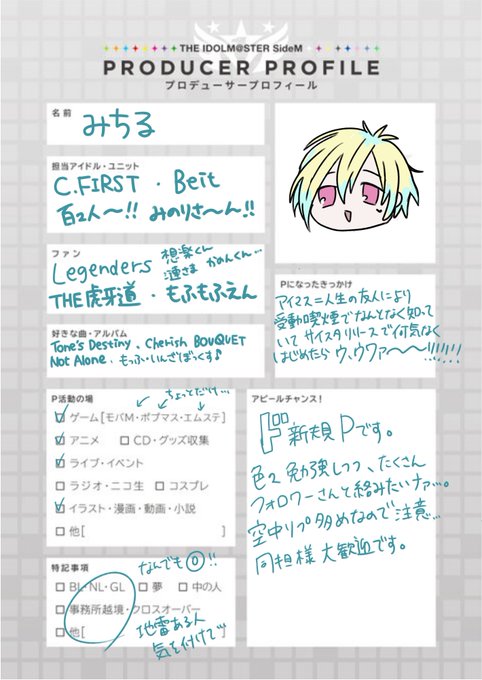 THE IDOLM@STER SideM
PRODUCER PROFILE
プロデューサープロフィール
名前
みちる
担当アイドル・ユニット
C.FIRST・Beit
百々人〜!! みのりさ〜ん!!
ファン
Legenders 想楽くん
漣さま かのんくん…
THE虎牙道・もふもふえん
好きな曲・アルバム
Tone's Destiny、Cherish BOUQUET
Not Alone、もっふ・いんざぼっくす♪
Pになったきっかけ
アイマス=人生の友人により
受動喫煙でなんとなく知って
いて サイスタリリースで何気なく
はじめたら ウ、ウワァ〜〜!!!!!!
P活動の場
ちょっとだけ…
ゲーム[モバM・ポプマス・エムステ]
アニメ CD・グッズ収集
ライブ・イベント
ラジオ・ニコ生 コスプレ
イラスト・漫画・動画・小説
他[ ]
特記事項
なんでも◎!!
BL・NL・GL 夢 中の人
事務所越境・クロスオーバー
他[
地雷ある人
気を付けて…
アピールチャンス!
ド新規Pです。
色々勉強しつつ、たくさん
フォロワーさんと絡みたいナァ…。
空中リプ多めなので注意…
同担様大歓迎です。